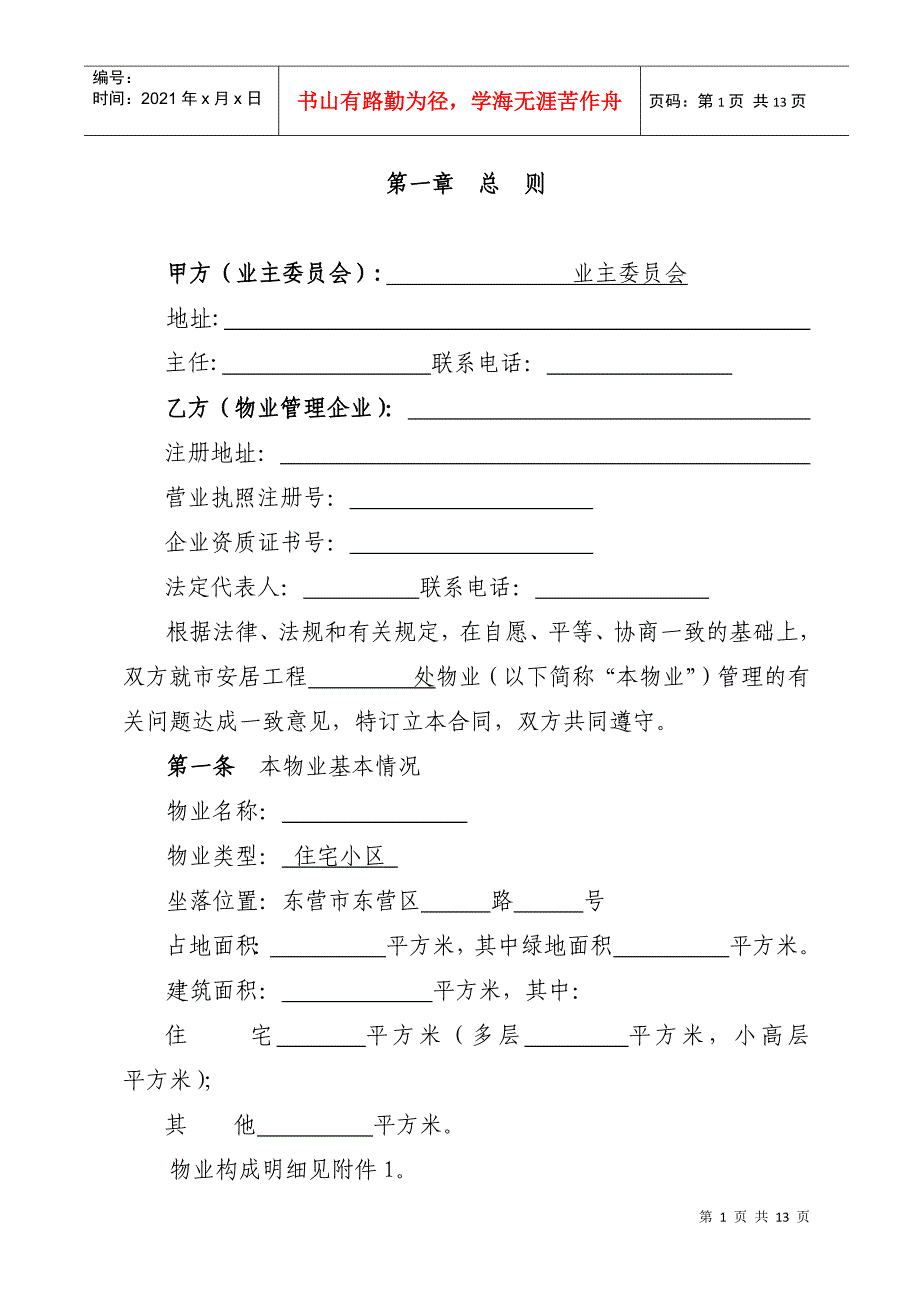 编号：
时间：2021年x月x日
书山有路勤为径，学海无涯苦作舟
页码：第1页 共13页
第一章 总 则
甲方（业主委员会）：________________业主委员会
地址：________________
主任：________________联系电话：________________
乙方（物业管理企业）：________________
注册地址：________________
营业执照注册号：________________
企业资质证书号：________________
法定代表人：__________联系电话：________________
根据法律、法规和有关规定，在自愿、平等、协商一致的基础上，
双方就市安居工程__________处物业（以下简称“本物业”）管理的有
关问题达成一致意见，特订立本合同，双方共同遵守。
第一条 本物业基本情况
物业名称：________________
物业类型： 住宅小区
坐落位置：东营市东营区______路______号
占地面积：__________平方米，其中绿地面积__________平方米。
建筑面积：_____________平方米，其中：
住 宅________平方米（多层_________平方米，小高层
平方米）；
其 他__________平方米。
物业构成明细见附件1。
第 1 页 共 13 页